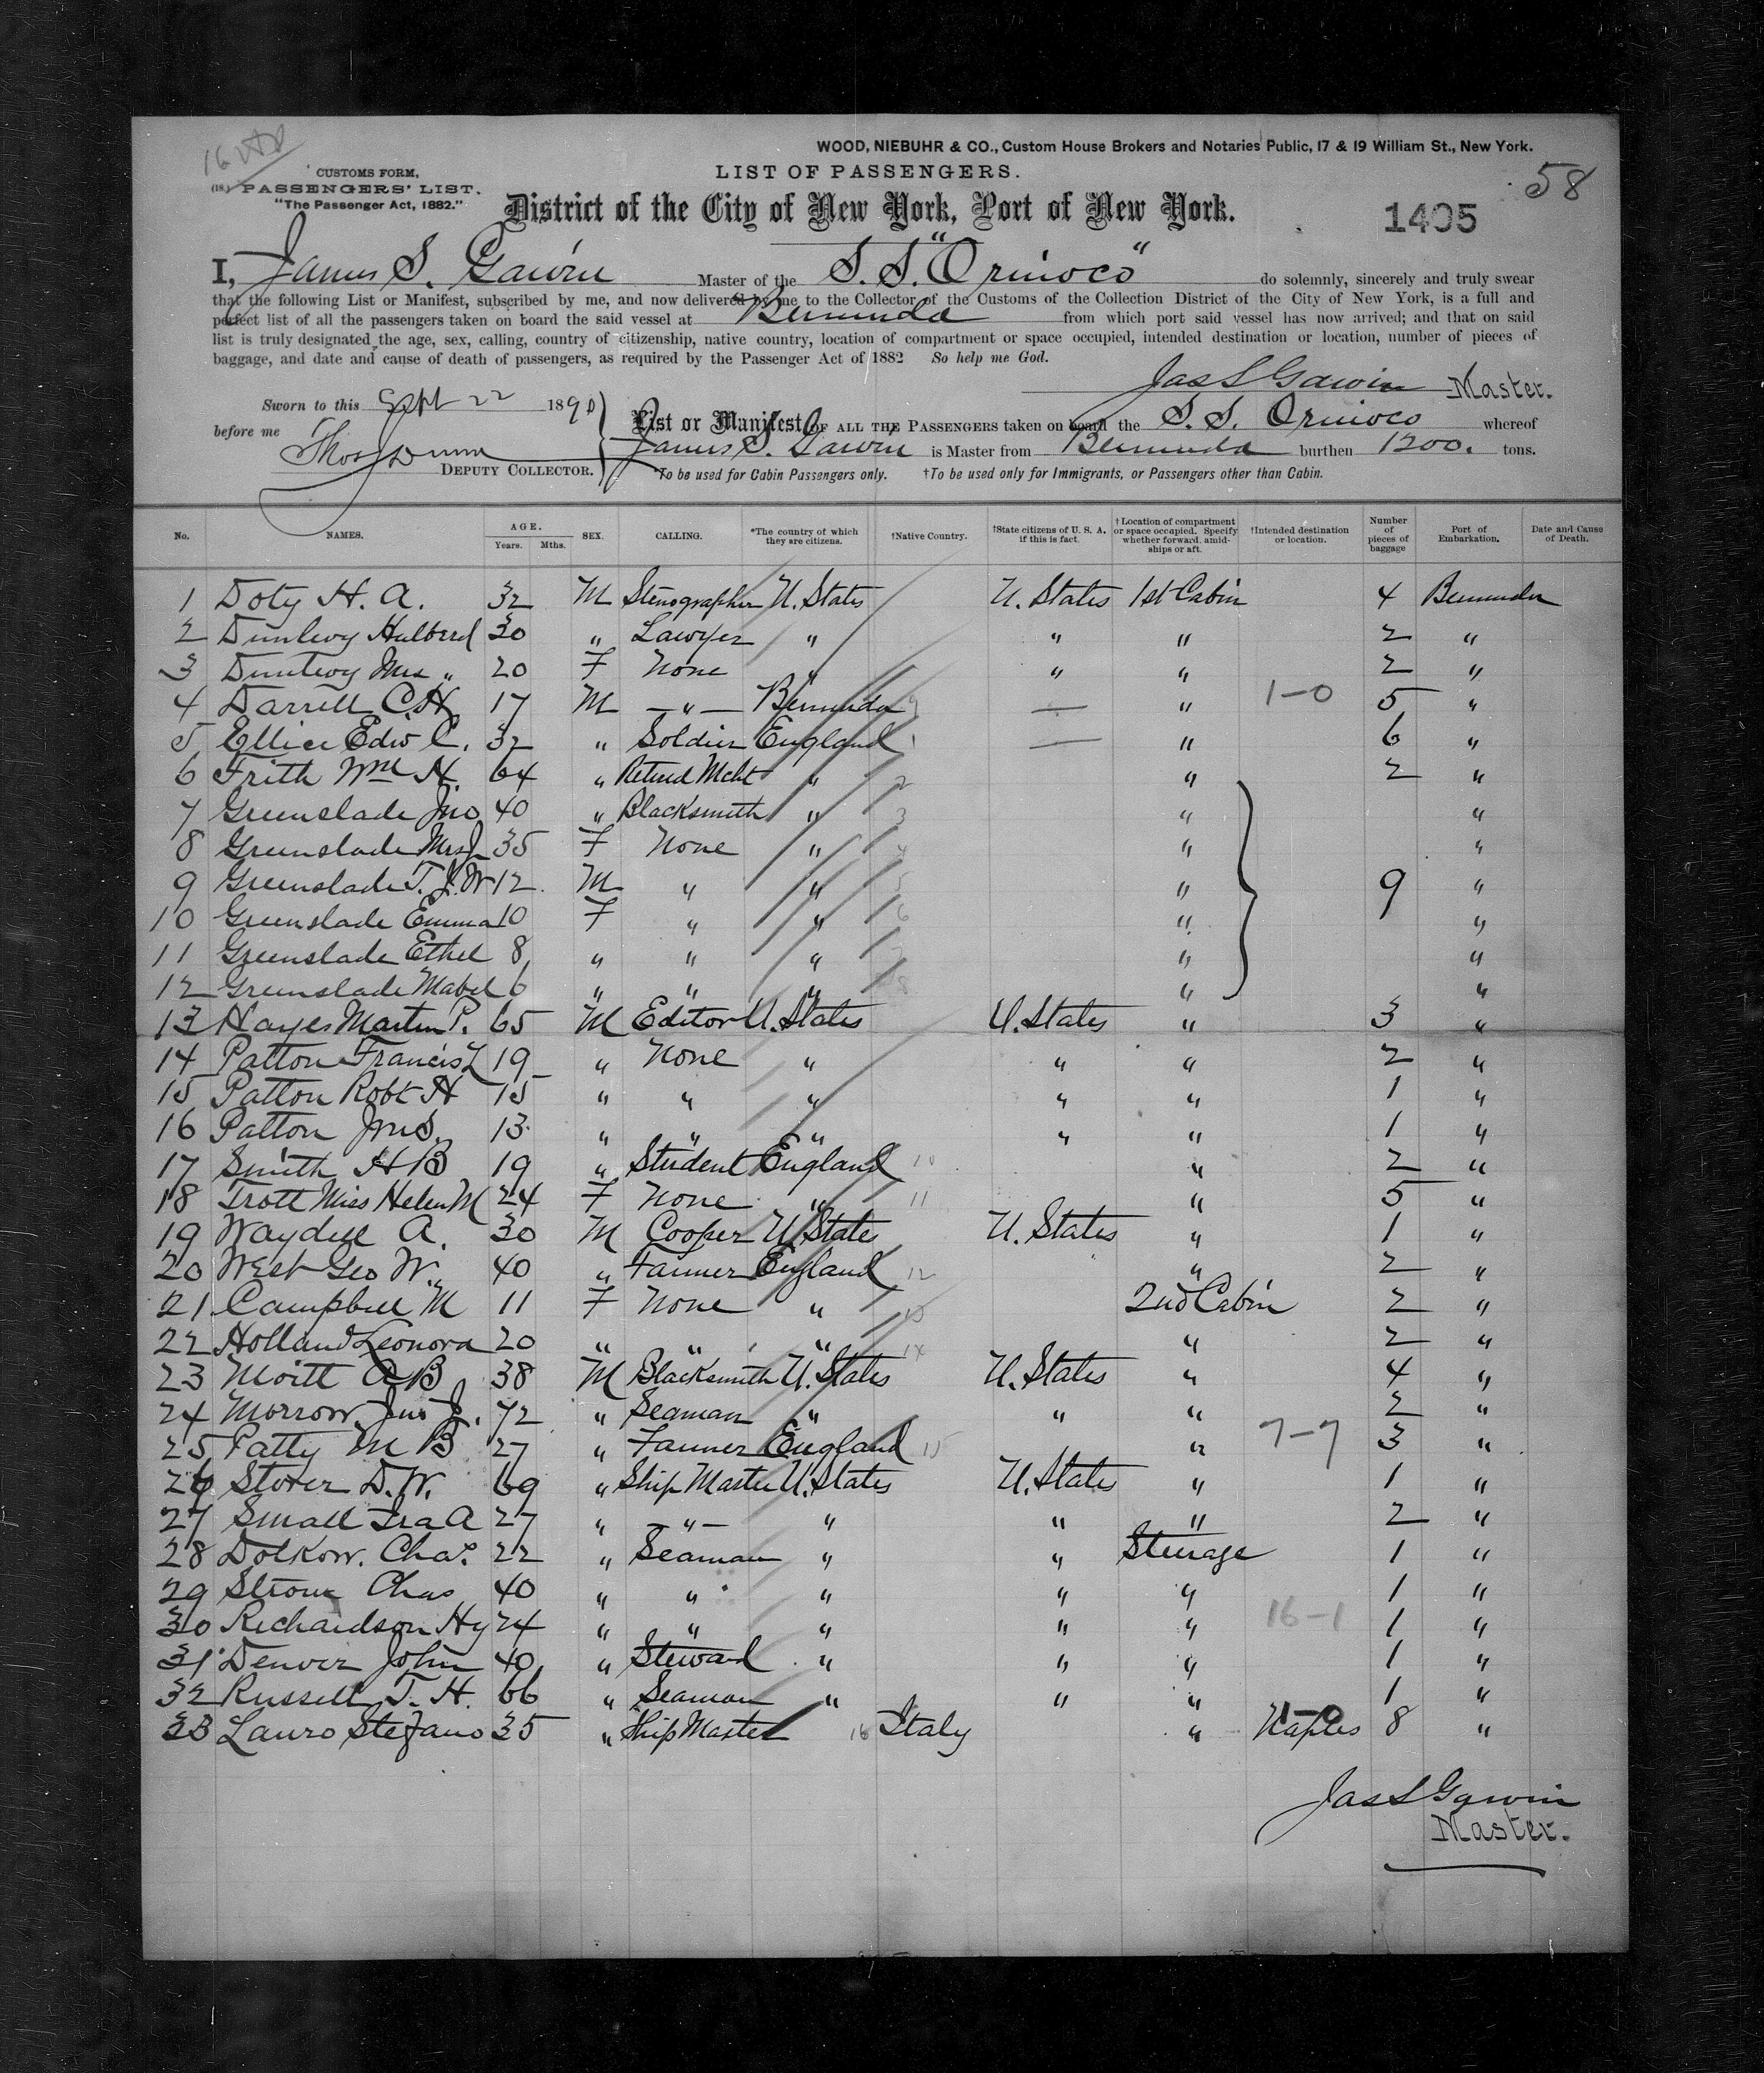 WOOD, NIEBUHR & CO., Custom House Brokers and Notaries Public, 17 & 19 William St., New York.
CUSTOMS FORM,
(18.) PASSENGERS' LIST.
"The Passenger Act, 1882."
LIST OF PASSENGERS.
58
District of the City of New York, Port of New York.
1405
I, James S. Garvin Master of the S. S. "Orinoco" do solemnly, sincerely and truly swear
that the following List or Manifest, subscribed by me, and now delivered by me to the Collector of the Customs of the Collection District of the City of New York, is a full and
perfect list of all the passengers taken on board the said vessel at Bermuda from which port said vessel has now arrived; and that on said
list is truly designated the age, sex, calling, country of citizenship, native country, location of compartment or space occupied, intended destination or location, number of pieces of
baggage, and date and cause of death of passengers, as required by the Passenger Act of 1882 So help me God.
Jas S Garvin Master.
Sworn to this Sept 22 1890
before me
Thos Dunn
DEPUTY COLLECTOR.
List or Manifest OF ALL THE PASSENGERS taken on board the S. S. Orinoco whereof
James S. Garvin is Master from Bermuda burthen 1200. tons.
*To be used for Cabin Passengers only. †To be used only for Immigrants, or Passengers other than Cabin.
No. NAMES. AGE. Years. Mths. SEX. CALLING. *The country of which they are citizens. †Native Country. †State citizens of U. S. A. if this is fact. †Location of compartment or space occupied. Specify whether forward, amidships or aft. †Intended destination or location. Number of pieces of baggage Port of Embarkation. Date and Cause of Death.
1 Doty H. A. 32 M Stenographer U. States U. States 1st Cabin 4 Bermuda
2 Dunlevy Hulberd 30 " Lawyer " " " 2 "
3 Dunlevy Mrs " 20 F None " " " 2 "
4 Darrell C.H. 17 M — " — Bermuda 9 — " 1-0 5 "
5 Ellice Edw C. 32 " Soldier England 1 — " 6 "
6 Frith Wm H. 64 " Retired Mcht " 2 " 2 "
7 Greenslade Jno 40 " Blacksmith " 3 " "
8 Greenslade Mrs J 35 F None " 4 " "
9 Greenslade T. J. W 12 M " " 5 " 9 "
10 Greenslade Emma 10 F " " 6 " "
11 Greenslade Ethel 8 " " " 7 " "
12 Greenslade Mabel 6 " " " 8 " "
13 Hayes Martin P. 65 M Editor U. States U. States " 3 "
14 Patton Francis L 19 " None " " " 2 "
15 Patton Robt H 15 " " " " " 1 "
16 Patton Jno S. 13 " " " " " 1 "
17 Smith H B 19 " Student England 10 " 2 "
18 Trott Miss Helen M 24 F None " 11 " 5 "
19 Waydell A. 30 M Cooper U. States U. States " 1 "
20 West Geo W. 40 " Farmer England 12 " 2 "
21 Campbell M 11 F None " 13 2nd Cabin 2 "
22 Holland Leonora 20 " " " 14 " 2 "
23 Moitt A B 38 M Blacksmith U. States U. States " 4 "
24 Morrow Jno J. 72 " Seaman " " " 2 "
25 Patty M B 27 " Farmer England 15 " 7-7 3 "
26 Storer D. W. 69 " Ship Master U. States U. States " 1 "
27 Small Ira A 27 " — " — " " " 2 "
28 Dolkow. Chas. 22 " Seaman " " Steerage 1 "
29 Chas 40 " " " " " 1 "
30 Richardson Hy 24 " " " " " 16-1 1 "
31 Denver John 40 " Steward " " " 1 "
32 Russell T. H. 66 " Seaman " " " 1 "
33 Lauro Stefano 35 " Ship Master 16 Italy " Naples 8 "
Jas S Garvin
Master.